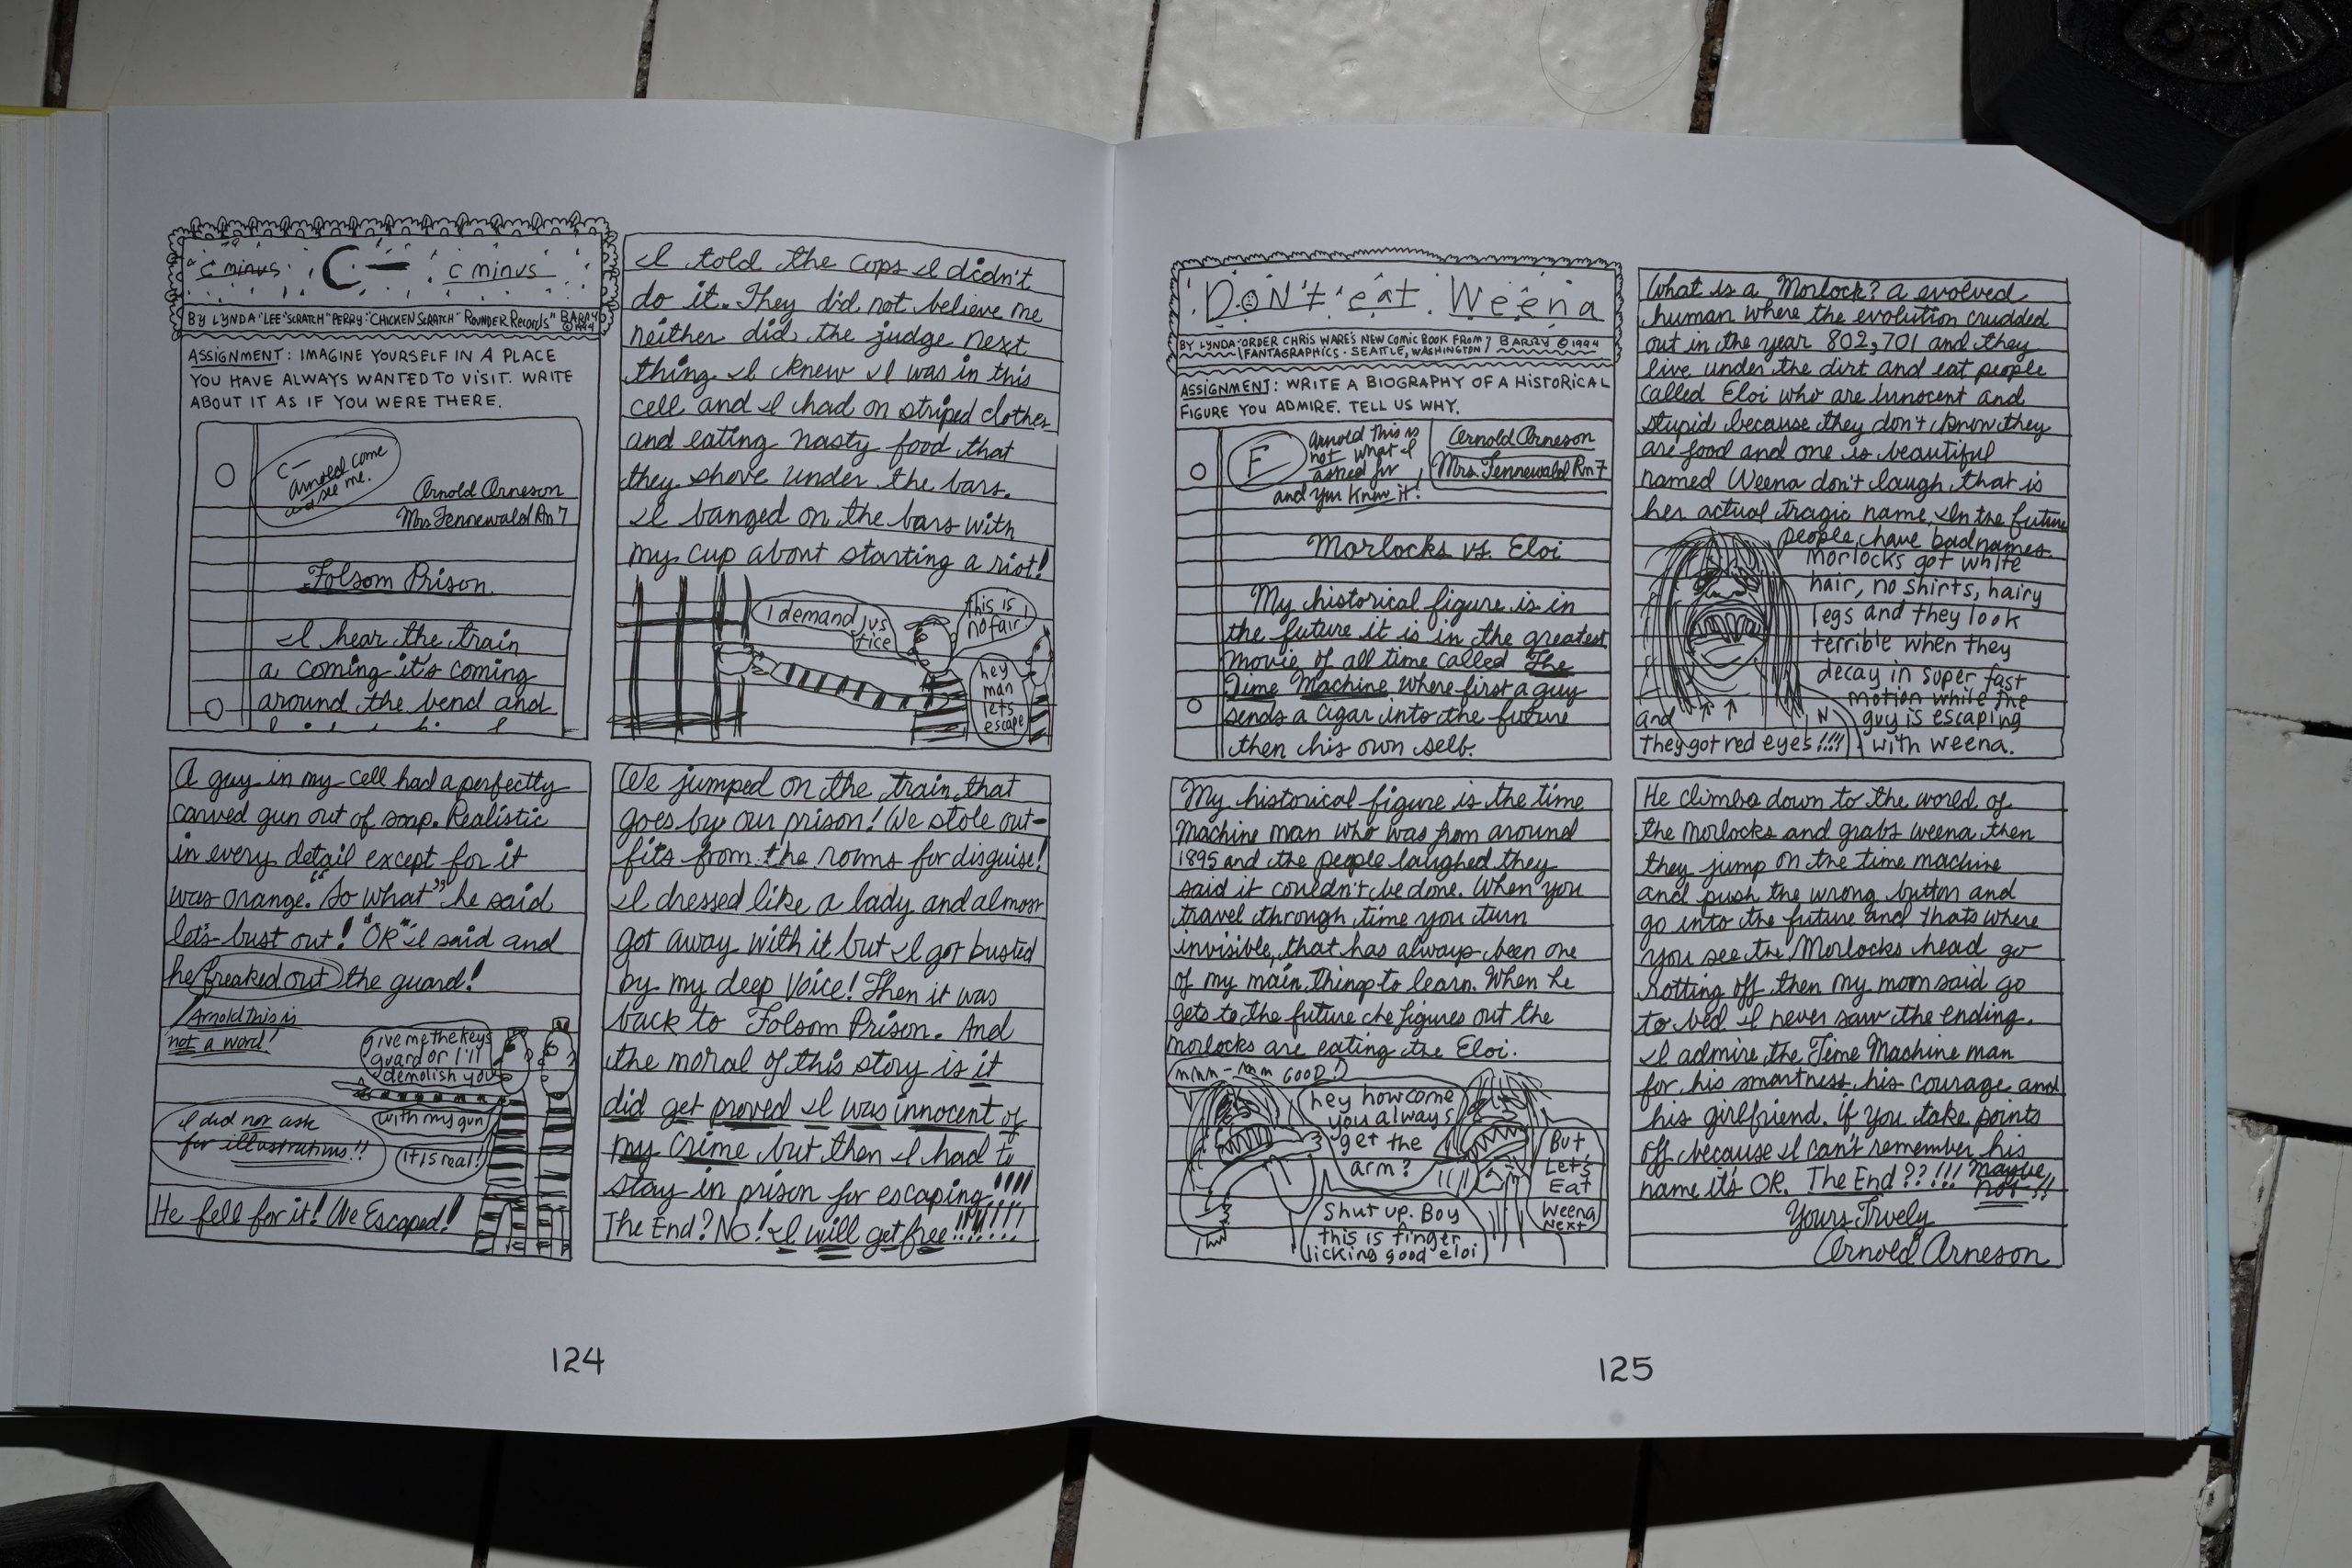 C minus C- C minus
BY LYNDA "LEE "SCRATCH" PERRY: "CHICKEN SCRATCH" ROUNDER RECORDS" BARRY © 1994
ASSIGNMENT: IMAGINE YOURSELF IN A PLACE
YOU HAVE ALWAYS WANTED TO VISIT. WRITE
ABOUT IT AS IF YOU WERE THERE.
C-
Arnold come
and see me.
Arnold Arneson
Mrs. Fennewald Rm 7
Folsom Prison.
I hear the train
a coming it's coming
around the bend and
I told the cops I didn't
do it. They did not believe me
neither did the judge next
thing I knew I was in this
cell and I had on striped clothes
and eating nasty food that
they shove under the bars.
I banged on the bars with
my cup about starting a riot!
I demand jus
tice
this is
no fair!
hey
man
lets
escape
A guy in my cell had a perfectly
carved gun out of soap. Realistic
in every detail except for it
was orange. "So what" he said
let's bust out! "OK" I said and
he freaked out the guard!
Arnold this is
not a word!
give me the keys
guard or I'll
demolish you
with my gun
it is real!
I did not ask
for illustrations!!
He fell for it! We Escaped!
We jumped on the train that
goes by our prison! We stole out-
fits from the rooms for disguise!
I dressed like a lady and almost
got away with it but I got busted
by my deep voice! Then it was
back to Folsom Prison. And
the moral of this story is it
did get proved I was innocent of
my crime but then I had to
stay in prison for escaping!!!!
The End? NO! I will get free!!!!!!!
124
DON'T eat Weena
BY LYNDA "ORDER CHRIS WARE'S NEW COMIC BOOK FROM FANTAGRAPHICS - SEATTLE, WASHINGTON" BARRY © 1994
ASSIGNMENT: WRITE A BIOGRAPHY OF A HISTORICAL
FIGURE YOU ADMIRE. TELL US WHY.
F
Arnold this is
not what I
asked for
and you knew it!
Arnold Arneson
Mrs. Fennewald Rm 7
Morlocks vs. Eloi
My historical figure is in
the future it is in the greatest
movie of all time called The
Time Machine where first a guy
sends a cigar into the future
then his own self.
What is a Morlock? a evolved
human where the evolution crudded
out in the year 802,701 and they
live under the dirt and eat people
called Eloi who are innocent and
stupid because they don't know they
are food and one is beautiful
named Weena don't laugh that is
her actual tragic name. In the future
people have bad names.
morlocks got white
hair, no shirts, hairy
legs and they look
terrible when they
decay in super fast
motion while the
guy is escaping
with weena.
and
they got red eyes!!!!
My historical figure is the time
machine man who was from around
1895 and the people laughed they
said it couldn't be done. When you
travel through time you turn
invisible, that has always been one
of my main things to learn. When he
gets to the future he figures out the
morlocks are eating the Eloi.
mmm-mm GOOD!
hey how come
you always
get the
arm?
But,
Let's
Eat
Weena
Next
Shut up. Boy
this is finger
licking good eloi
He climbs down to the world of
the morlocks and grabs weena then
they jump on the time machine
and push the wrong button and
go into the future and thats where
you see the Morlocks head go
rotting off then my mom said go
to bed I never saw the ending.
I admire the Time Machine man
for his smartness, his courage and
his girlfriend. if you take points
off because I can't remember his
name it's OK. The End??!!! Maybe
not!!
Yours Truely
Arnold Arneson
125